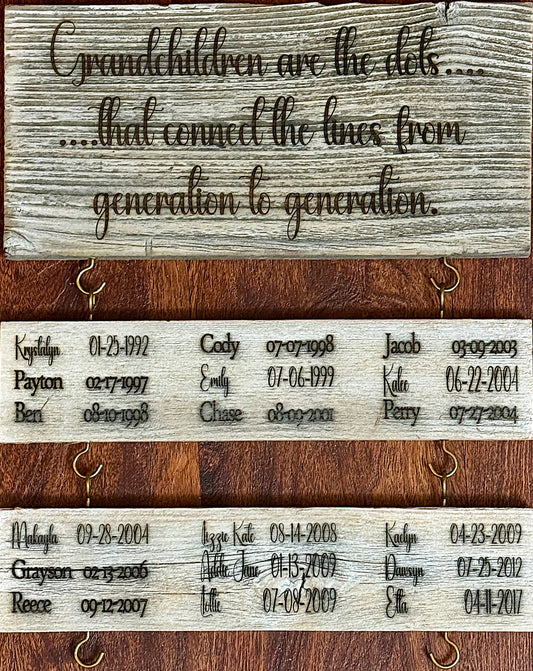 Grandchildren are the dots....
....that connect the lines from
generation to generation.
Krystalyn 01-25-1992 Cody 07-07-1998 Jacob 03-09-2003
Payton 02-17-1997 Emily 07-06-1999 Kalee 06-22-2004
Ben 08-10-1998 Chase 08-09-2001 Perry 07-27-2004
Makayla 09-28-2004 Lizzie Kate 08-14-2008 Kaelyn 04-23-2009
Grayson 02-13-2006 Addie Jane 01-13-2009 Dawsyn 07-25-2012
Reece 09-12-2007 Lottie 07-08-2009 Etta 04-11-2017